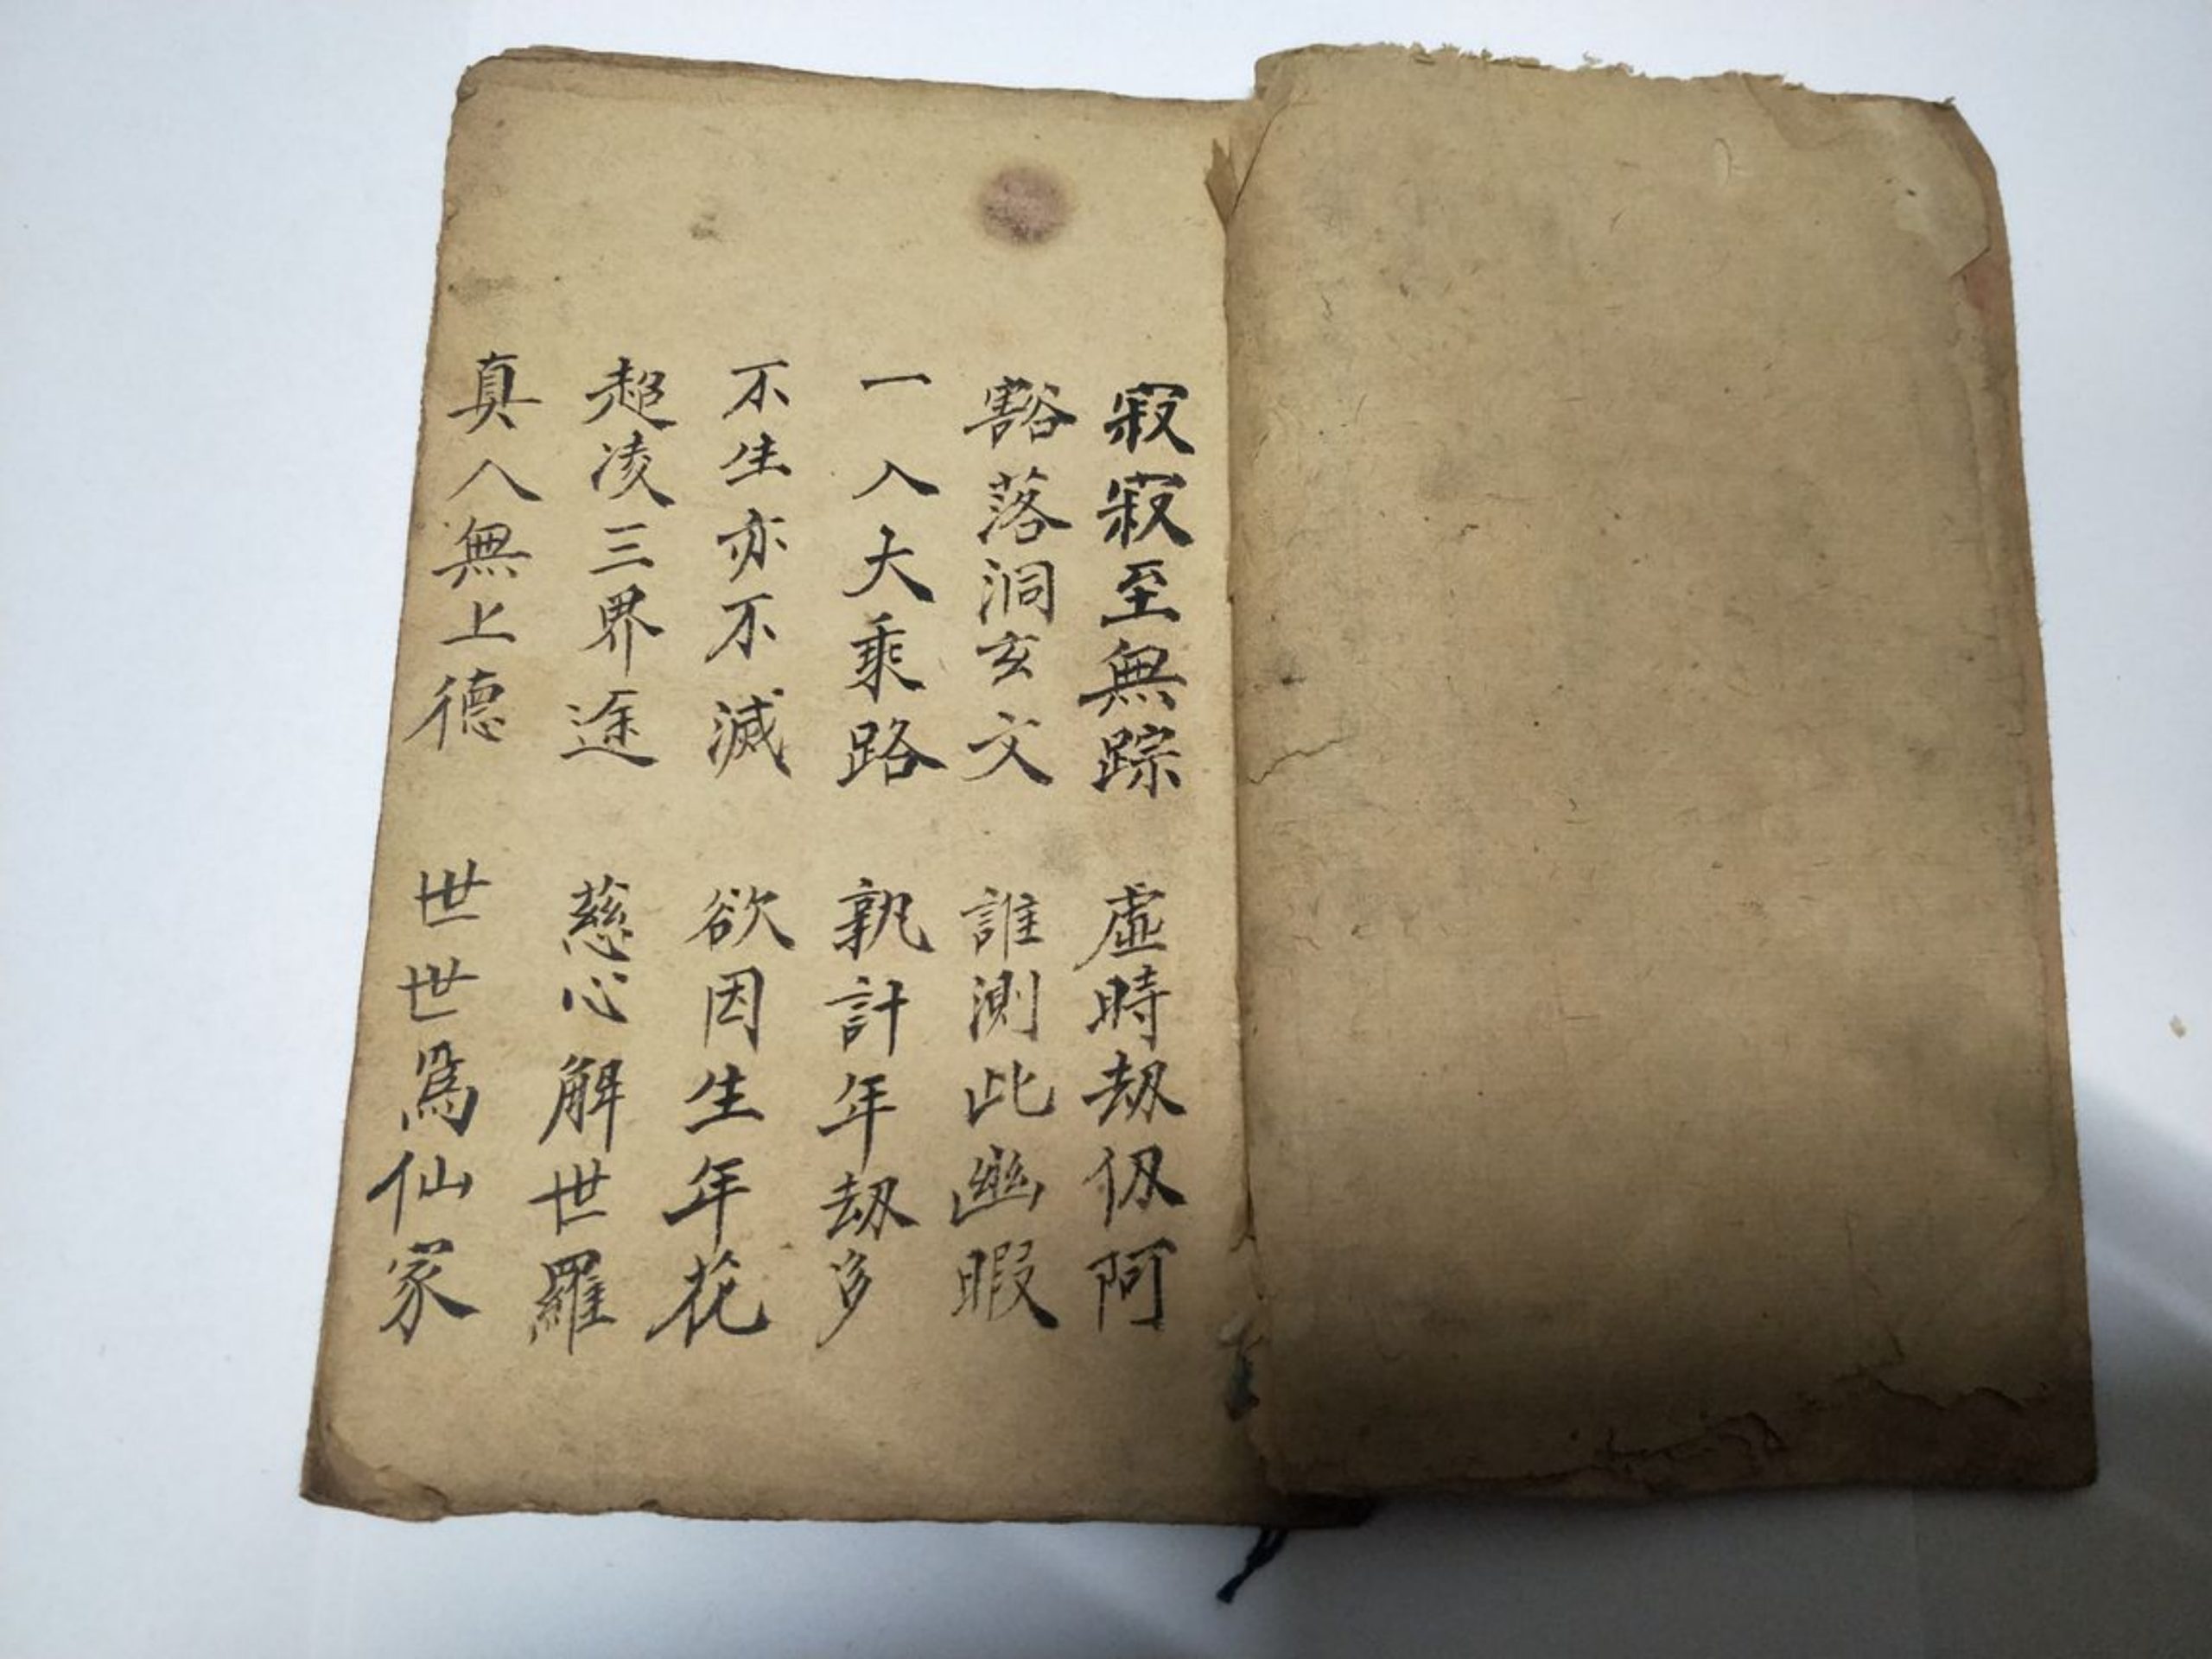 寂寂至無踪 虛時劫仭阿
豁落洞玄文 誰測此幽暇
一入大乘路 孰計年劫多
不生亦不滅 欲因生年花
超凌三界途 慈心解世羅
真人無上德 世世爲仙家